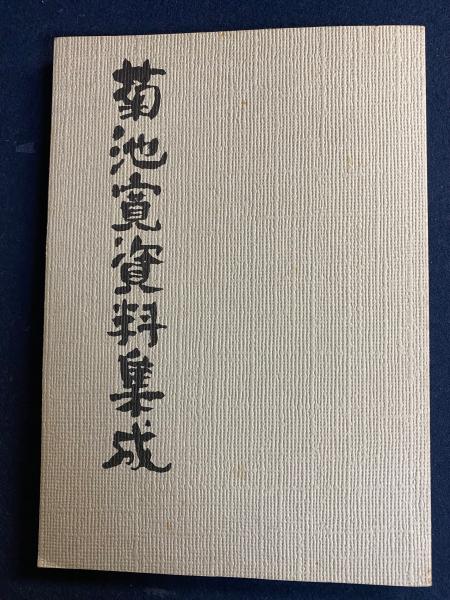 菊池寛資料集成